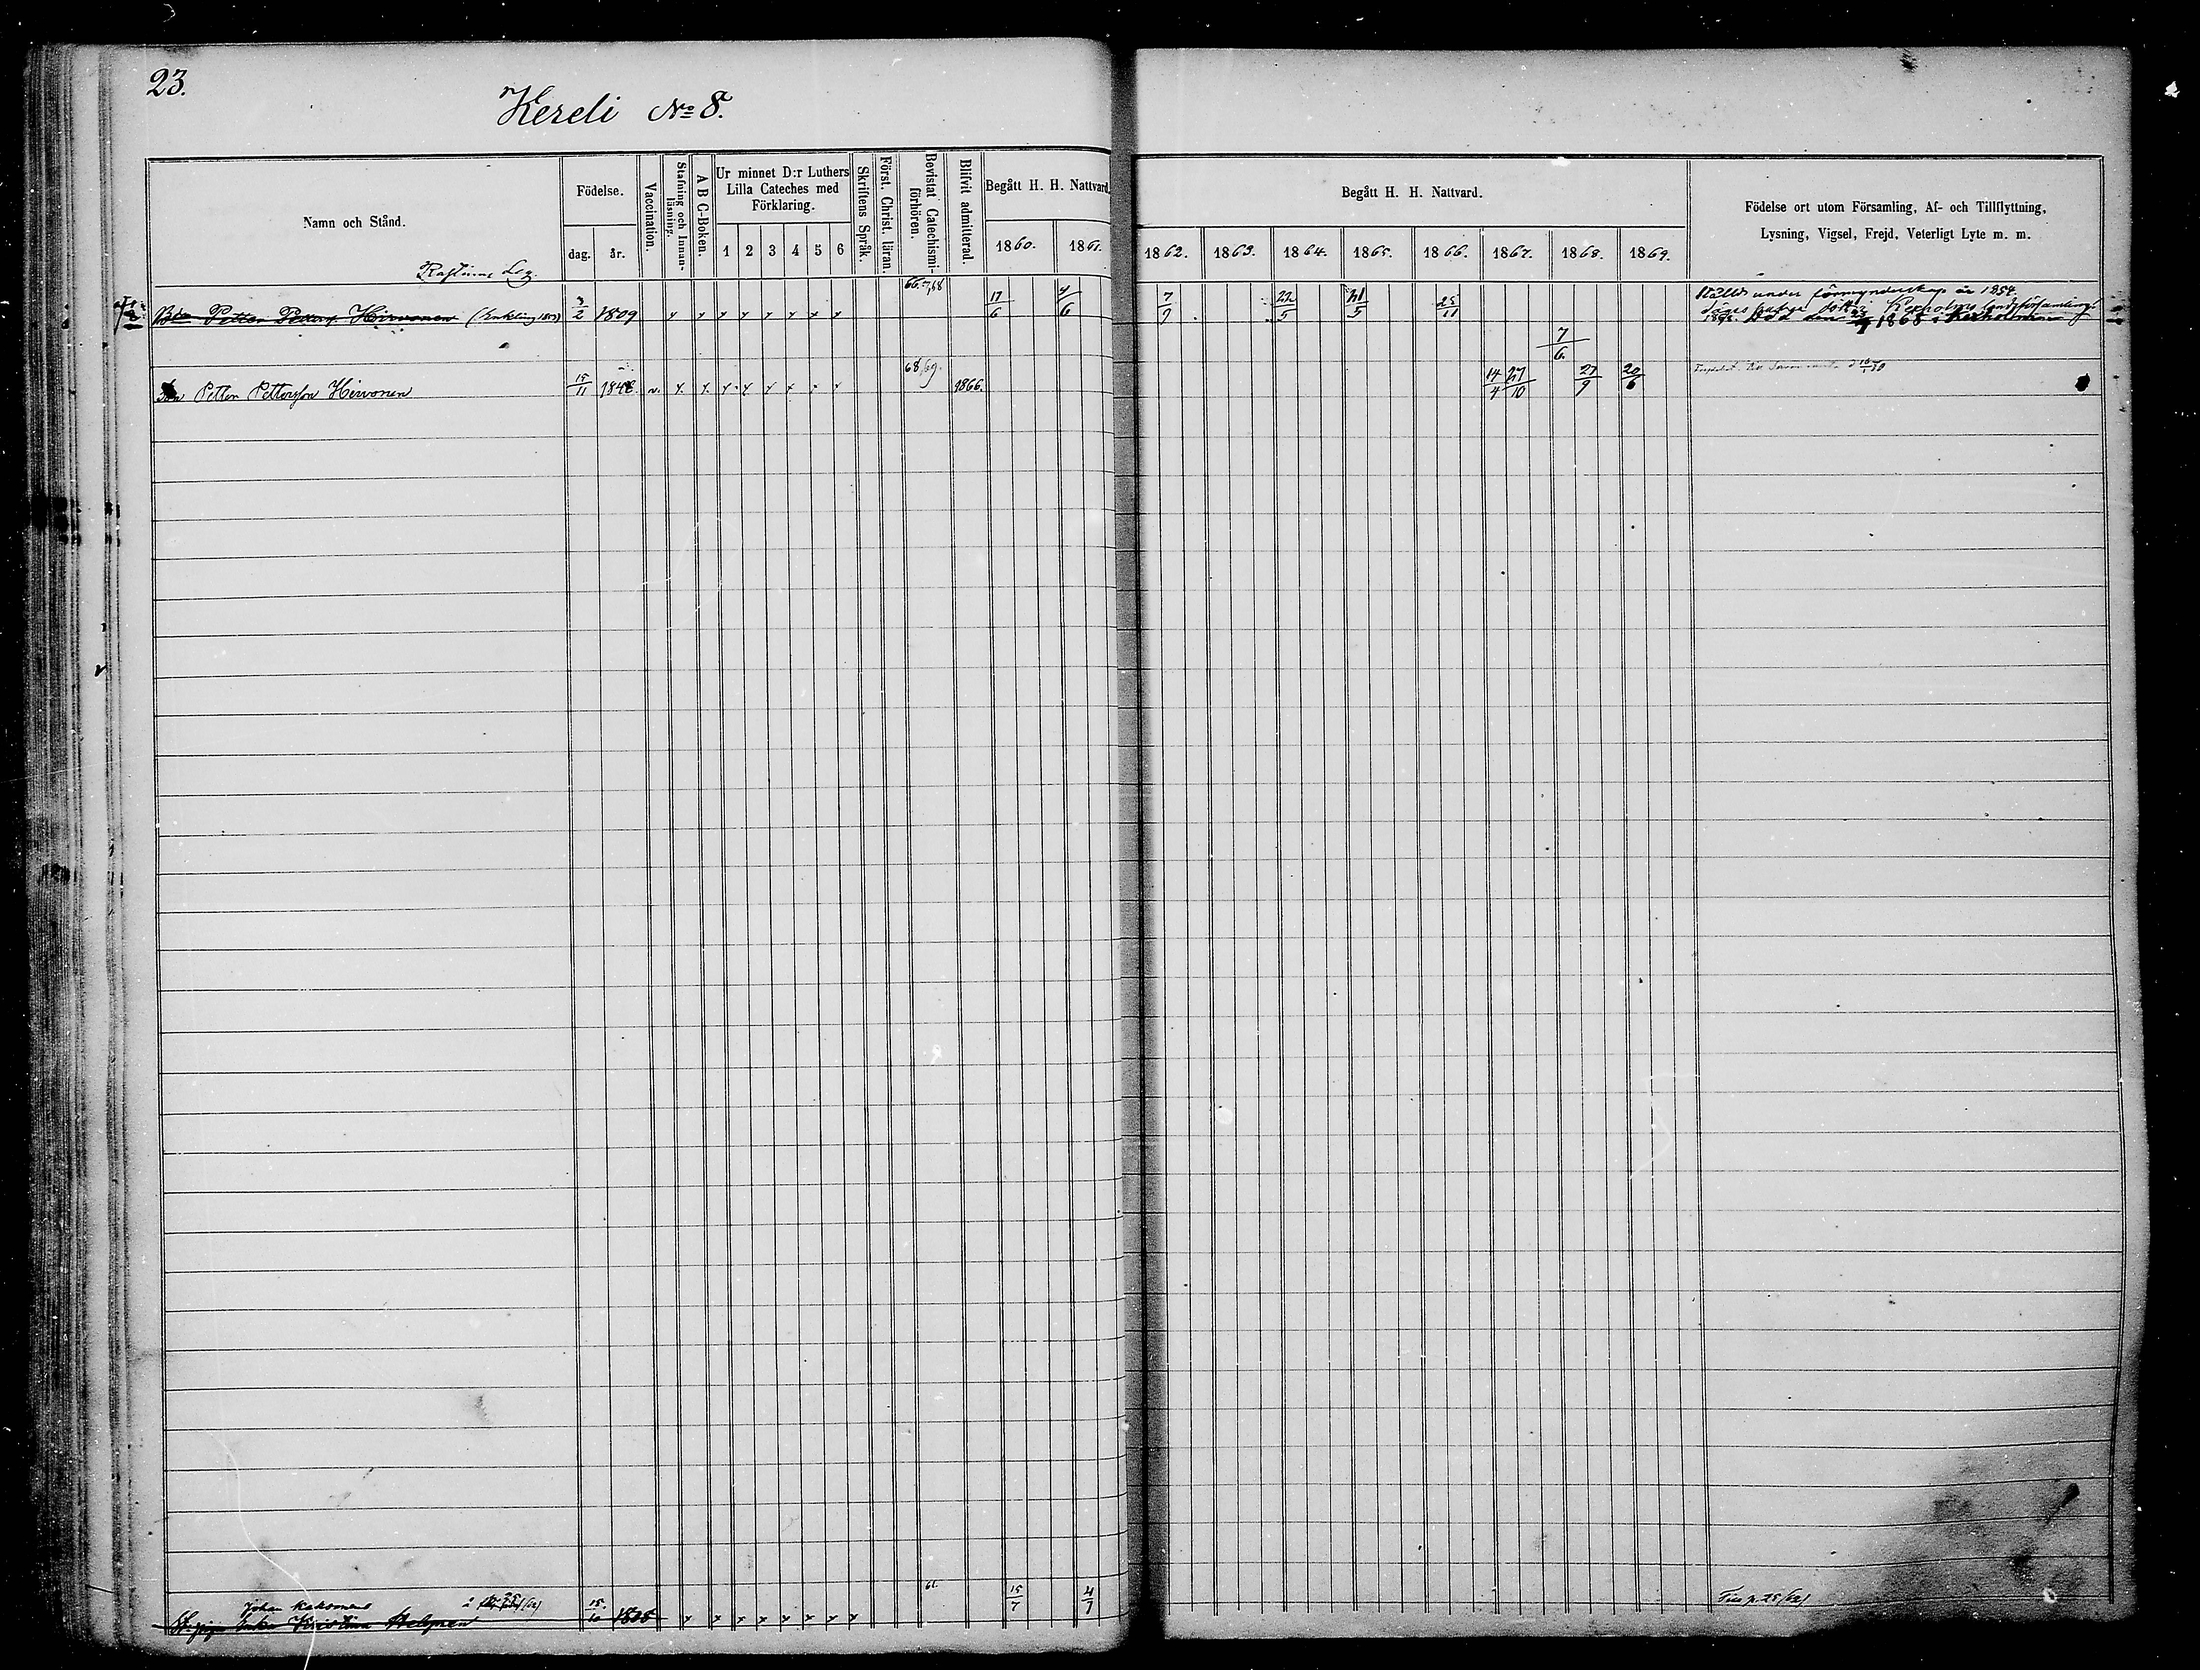 23.
Kereli No 8.
Namn och Stånd.
Födelse.
dag.
år.
Vaccination.
Stafning och Innan-läsning.
A B C-Boken.
Ur minnet D:r Luthers
Lilla Cateches med
Förklaring.
1 2 3 4 5 6
Skriftens Språk.
Först. Christ. läran.
Bevistat Catechismi-förhören.
Blifvit admitterad.
Begått H. H. Nattvard.
1860. 1861.
Begått H. H. Nattvard.
1862. 1863. 1864. 1865. 1866. 1867. 1868. 1869.
Födelse ort utom Församling, Af- och Tillflyttning,
Lysning, Vigsel, Frejd, Veterligt Lyte m. m.
66. 7,68
Petter Hirvonen (Enkling 3/2 1809 x x x x x x x x 17/6 4/6 7/9 22/5 21/5 25/11
Ställd under förmynderskap år 1854.
Död den 1868 i Kexholms
7/6
68/69.
Petter Pettersson Hirvonen 15/11 1848 v. x x x x x x x x 1866. 14/4 27/10 27/9 20/6
Johan Kakomens 61. 15/7 4/7
Enka Kristina 15/10 1808 x x x x x x x x
p. 25/62/